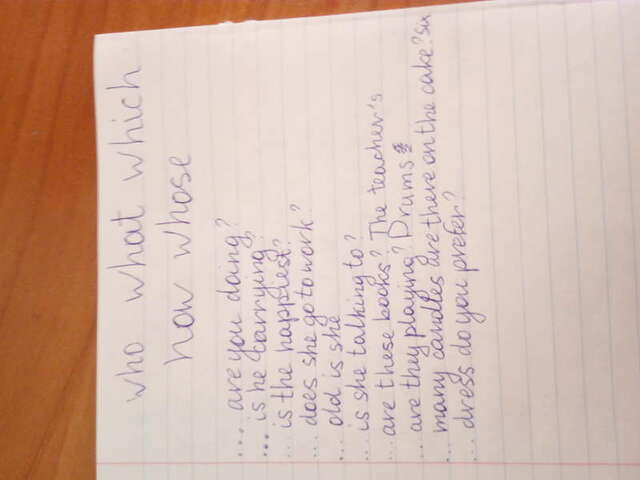 who what which
how whose
.... are you doing?
.... is he carrying?
... is the happiest?
... does she go to work?
... old is she
... is she talking to?
... are these books? The teacher's
... are they playing? Drums
... many candles are there on the cake?
... dress do you prefer?